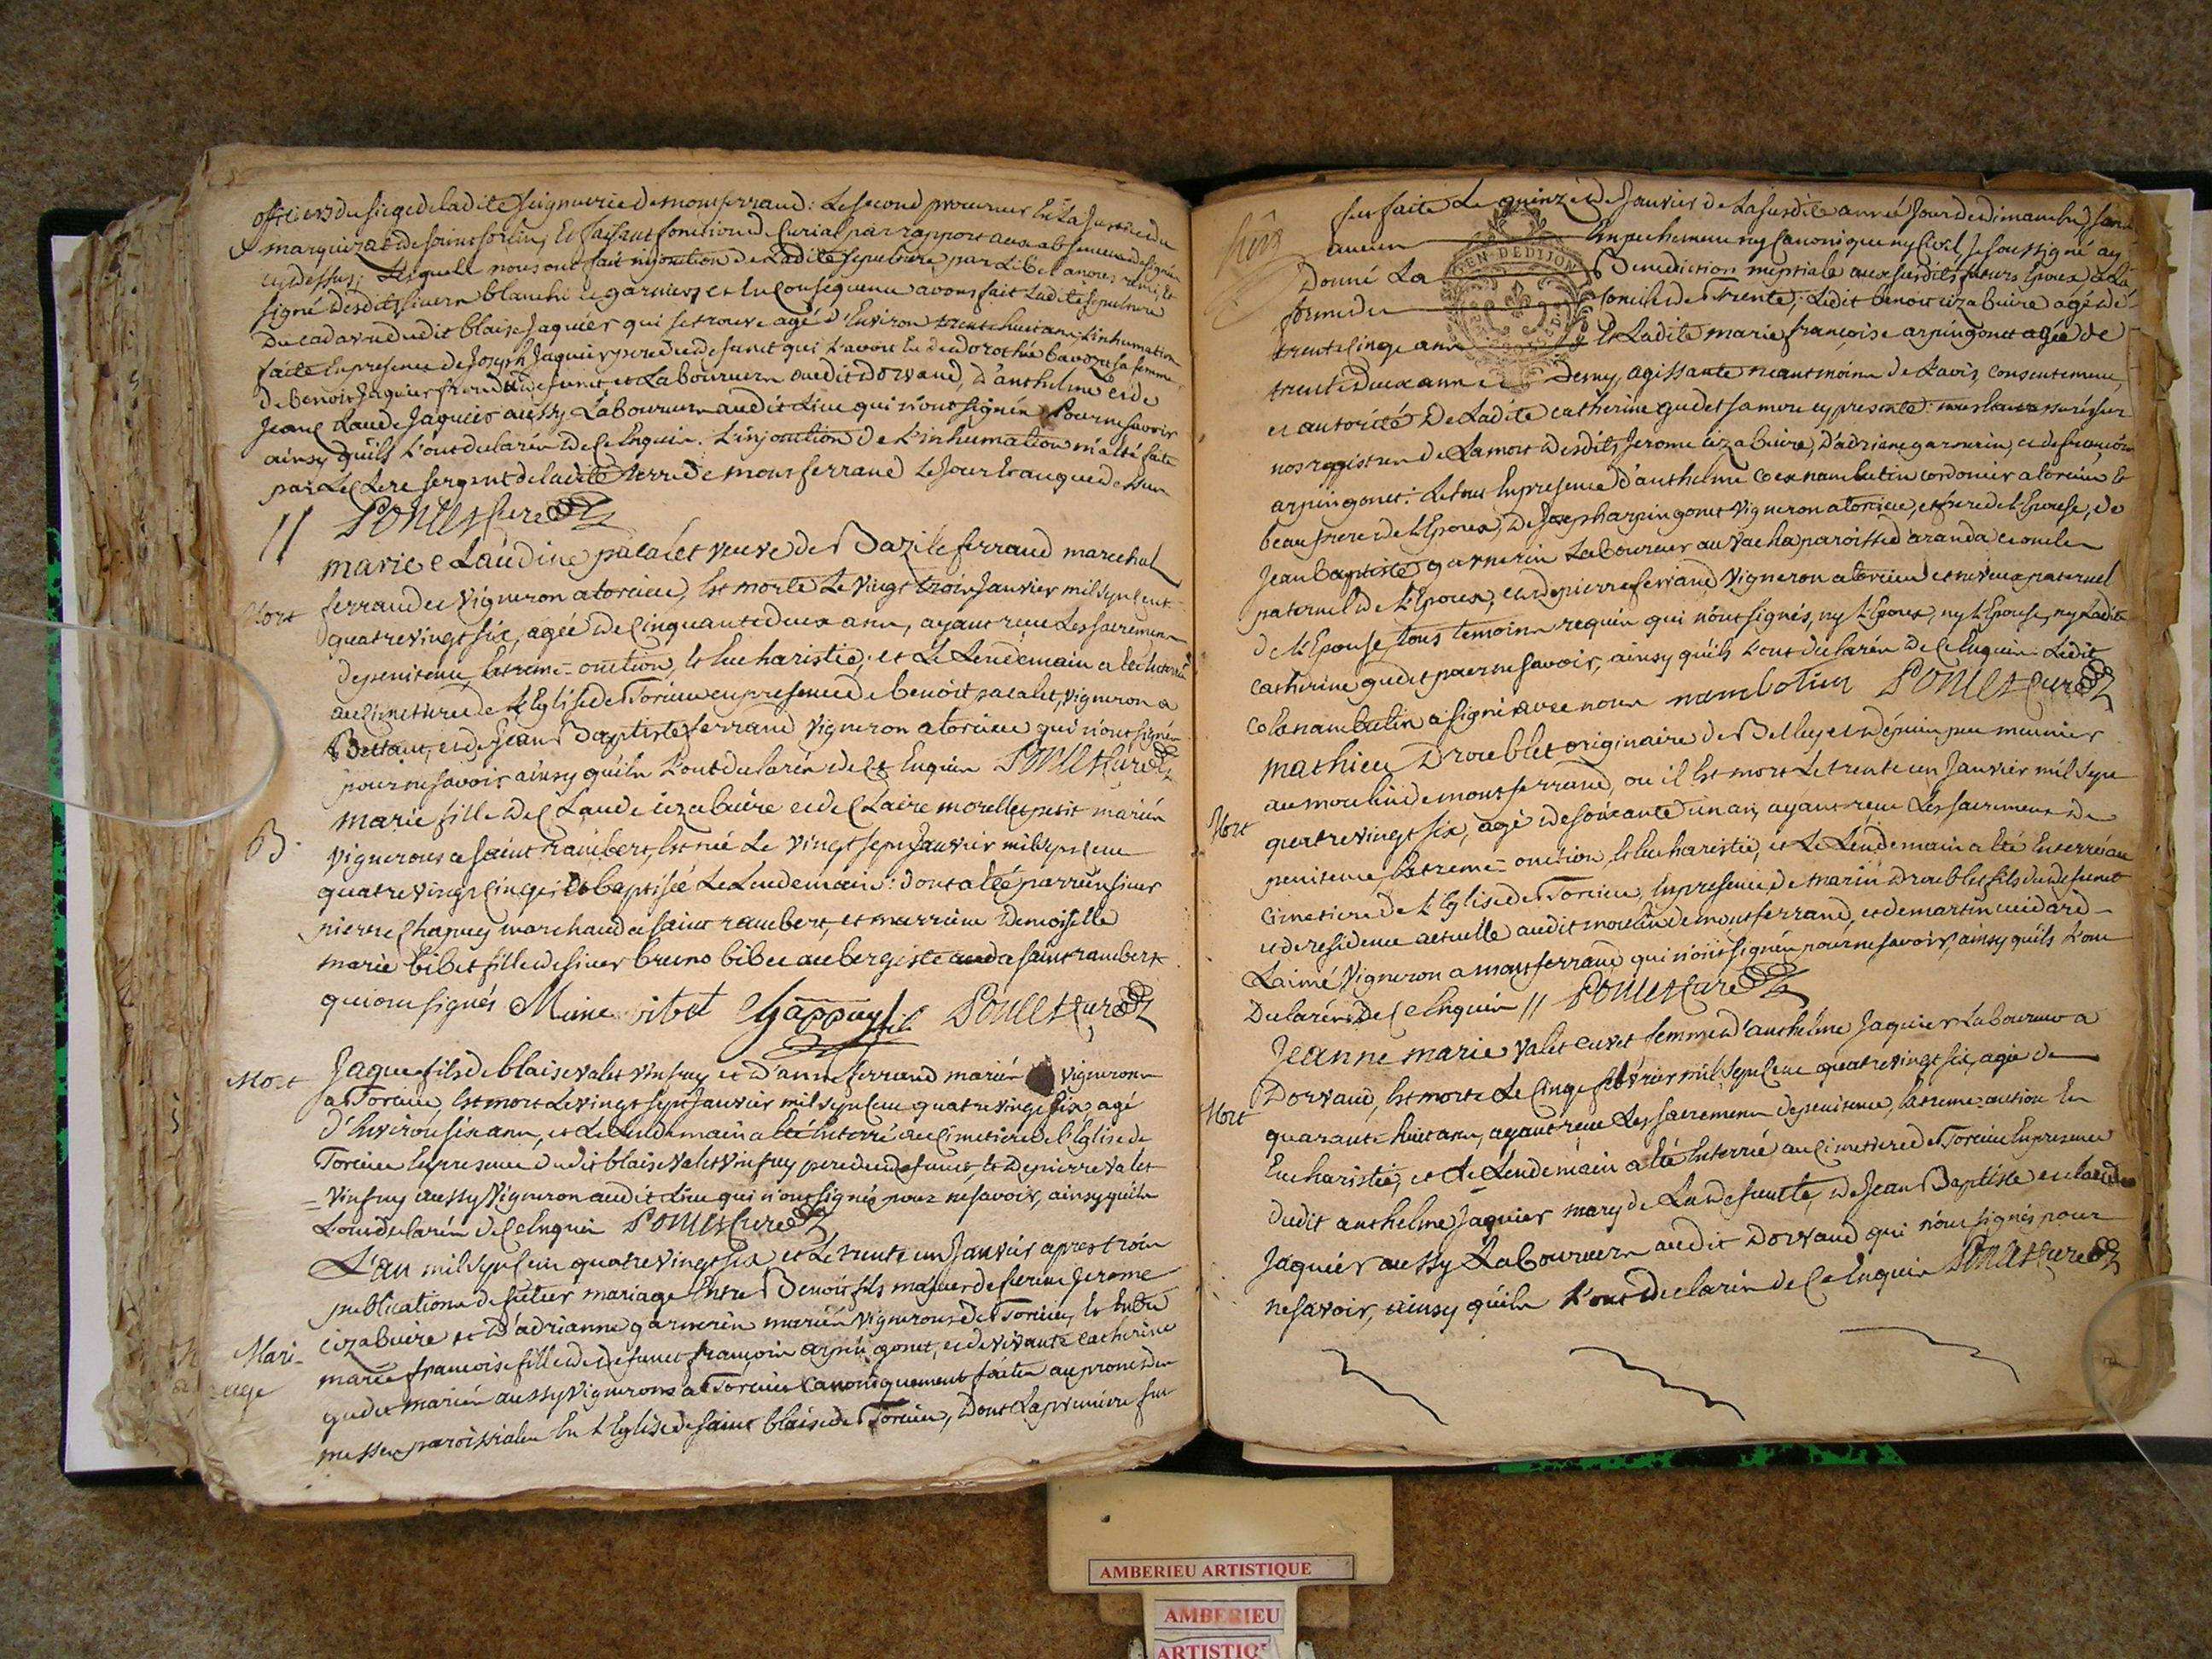 officiers du siege de ladite seigneurie de montferrand: Le second procureur En La Justice du
marquizat de saint sorlin; Et faisant fonction de Curial par rapport aux absences des
cy dessus; Lesquels nous ont fait injonction de Ladite sepulture par Libel a nous remis, et
signé desdits sieurs blanchi et garnier; et En Consequence avons fait Ladite sepulture
Du cadavre dudit blaise Jaquier qui se trouve agé d'Environ trente huit ans; L'inhumation
faite En presence de Joseph Jaquier pere du defunct qui L'avoit Eu de dorothée bavozet sa femme,
de benoit Jaquier frere du defunct et Laboureurs audit Dorvand, d'anthelme et de
Jean Claude Jaquier aussy Laboureurs audit Lieu qui n'ont signés Pour ne savoir
ainsy qu'ils L'ont declarés de Ce Enquis. L'injonction de L'inhumation m'a Eté faite
par Le Clerc sergent de ladite terre de montferrand Le Jour Et an que dessus
// Poncet Curé
marie Claudine pacalet veuve de Bazile ferrand marechal
Mort ferrand et Vigneron a torcieu, Est morte Le Vingt trois Janvier mil sept Cent
quatre vingt six, agée de Cinquante deux ans, ayant reçue Les sacremens
de penitence, Extreme-onction, Et Eucharistie; et Le Lendemain a Eté Enterrée
au Cimetiere de L'Eglise de Torcieu en presence de benoit pacalet, vigneron a
Bettant, et de Jean Baptiste ferrand vigneron a torcieu qui n'ont signés
pour ne savoir ainsy qu'ils L'ont declarés de Ce Enquis Poncet Curé
B. marie fille de Claude cizabuire et de Claire morellet petit mariés
Vignerons a saint rambert, Est née Le Vingt sept Janvier mil sept Cent
quatre vingt Cinq et Baptisée Le Lendemain: dont a Eté parrain sieur
pierre Chapuy marchand a saint rambert, et marraine demoiselle
marie bibet fille de sieur bruno bibet aubergiste a saint rambert
qui ont signés Poncet Curé
Mort Jaque fils de blaise valet vinfray et d'anne ferrand mariés vignerons
a Torcieu, Est mort Le vingt sept Janvier mil sept Cent quatre vingt six, agé
d'Environ six ans, et Le Lendemain a Eté Enterré au Cimetiere de L'Eglise de
Torcieu En presence dudit blaise valet vinfray pere du defunct, Et de pierre valet
= vinfray aussy Vigneron audit Lieu qui n'ont signés pour ne savoir, ainsy qu'ils
L'ont declarés de Ce Enquis Poncet Curé
L'an mil sept Cent quatre vingt six et Le trente un Janvier apres trois
publications de futur mariage Entre Benoit fils majeur de feu Jerome
cizabuire et d'adrianne garnerin mariés Vignerons de Torcieu, Et Entre
Mari- marie francoise fille de defunct françois arpin gonet, et de vivante catherine
age gudet mariés aussy Vignerons a Torcieu Canoniquement faites aux prones des
messes paroissiales En L'Eglise de saint blaise de Torcieu, dont La premiere fut
fut faite Le quinze de Janvier de La susdite année Jour de dimanche, sans
aucun Empechement ny Canonique ny Civil, Je soussigné ay
Donné La Benediction nuptiale aux susdits futurs Epoux
GEN·DE DIJON
forme du Concile de Trente; Ledit benoit cizabuire agé de
trente Cinq ans Et Ladite marie françoise arpin gonet agée de
trente deux ans et Demy, agissante neantmoins de L'avis, consentement,
et autorité De Ladite catherine gudet sa mere cy presente:
nos registres de La mort desdits Jerome cizabuire, d'adrianne garnerin, et de francois
arpin gonet: Le tout En presence d'anthelme colex nambotin cordonier a torcieu Et
beau frere de L'Epoux, de Joseph arpin gonet Vigneron a torcieu, et frere de L'Epouse, de
Jean baptiste garnerin Laboureur au vacha paroisse d'aranda et oncle
paternel de L'Epoux, et de pierre ferrand Vigneron a torcieu et neveu paternel
de L'Epouse tous temoins requis qui n'ont signés, ny L'Epoux, ny L'Epouse, ny Ladite
catherine gudet pour ne savoir, ainsy qu'ils L'ont declarés de Ce Enquis. Ledit
colex nambotin a signé avec nous nambotin Poncet Curé
mathieu Droublet originaire de Belley et depuis peu meunier
au moulin de montferrand, ou il Est mort Le trente un Janvier mil sept
Mort quatre vingt six, agé de soixante un an, ayant reçu Les sacremens de
penitence Extreme-onction, Et Eucharistie, et Le Lendemain a Eté Enterré au
Cimetiere de L'Eglise de Torcieu, En presence de marin Droublet fils du defunct
et de residence actuelle audit moulin de montferrand, et de martin
Laimé Vigneron a montferrand qui n'ont signés pour ne savoir, ainsy qu'ils L'ont
Declarés De Ce Enquis // Poncet Curé
Jeanne marie Valet cuvet femme d'anthelme Jaquier Laboureur a
Dorvand, Est morte Le Cinq fevrier mil sept Cent quatre vingt six, agée de
Mort quarante huit ans, ayant reçue Les sacremens de penitence, Extreme-onction Et
Eucharistie, et Le Lendemain a Eté Enterré au Cimetiere de Torcieu En presence
dudit anthelme Jaquier mary de La defuncte, de Jean Baptiste et claude
Jaquier aussy Laboureurs audit Dorvand qui n'ont signés pour
ne savoir, ainsy qu'ils L'ont declarés de Ce Enquis Poncet Curé
AMBERIEU ARTISTIQUE
AMBERIEU
ARTISTIQ